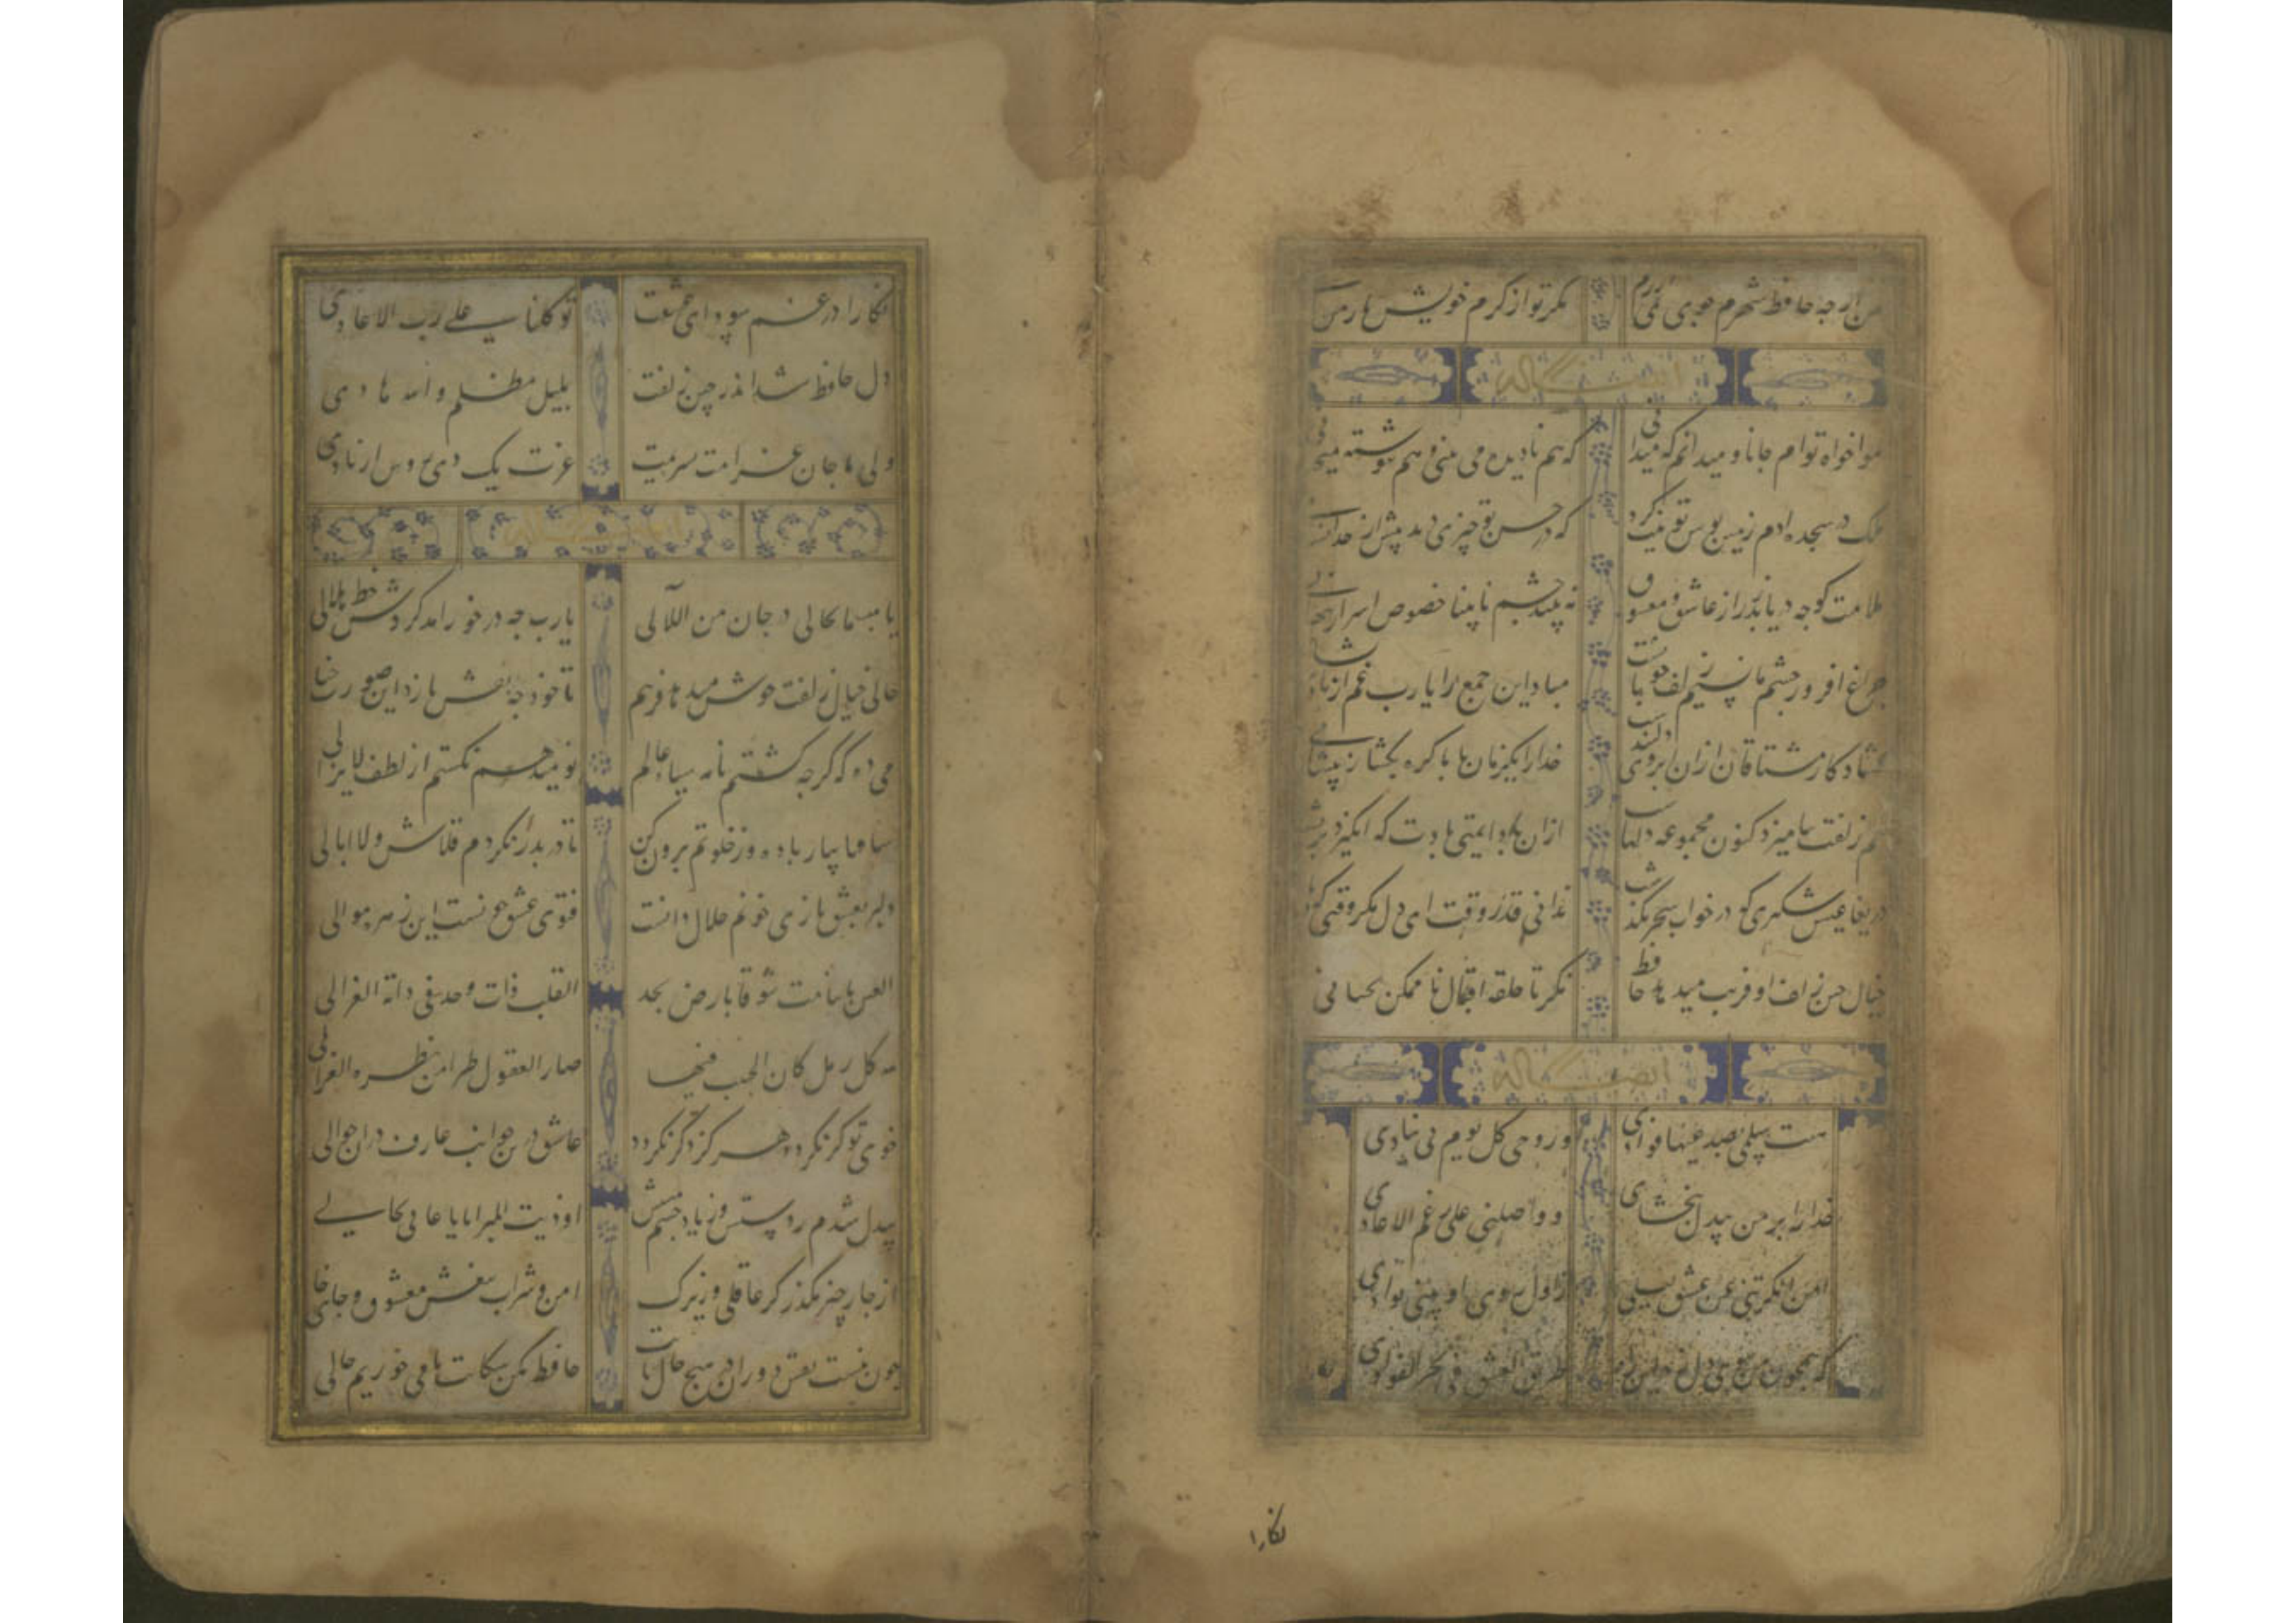 من ارجه حافظ شهرم جوی نمی ارزم مکر تو از کرم خویش یار من
ایضاً له
هواخواه توام جانا و میدانم که میدانی که هم نادیده می بینی و هم ننوشته میخوانی
ملک در سجده ادم زمین بوس تو نیت کرد که در حسن تو چیزی دید بیش از حد انسانی
ملامت کو چه دریابد راز عاشق و معشوق نه بیند چشم نابینا خصوص اسرار پنهانی
چراغ افروز چشم ما نسیم زلف خوبانست مباد این جمع را یارب غم از باد پریشانی
کشاد کار مشتاقان ازان ابروی دلبندست خدا را یکزمان با ما کره بکشا ز پیشانی
خم زلفت بنامیزد کنون مجموعه دلهاست ازان باد ایمنی بادت که انکیزد پریشانی
دریغا عیش شبکیری که در خواب سحر بکذشت ندانی قدر وقت ای دل مکر وقتی که
خیال چین زلف او فریب میدهد حافظ نکر تا حلقه اقبال ناممکن نجنبانی
ایضاً له
سبت سلمی بصدغیها فوادی و روحی کل یوم لی ینادی
خدا را بر من بیدل ببخشای و واصلنی علی رغم الاعادی
امن انکرتنی عن عشق سلمی تزاول روی او بینی بوادی
که همچون من بوتن دل طریق العشق فی بحر الودادی
نکارا
نکارا در غم سودای عشقت توکلنا علی رب الاعادی
دل حافظ شد اندر چین زلفت بلیل مظلم والله هادی
غرت یک
یا مبسما یحاکی درجا من اللآلی یارب چه در خور امد کردش خط هلالی
حالی خیال زلفت خوش میدهد فریبم تا خود چه نقش بازد این صورت خیالی
می ده که کرچه کشتم نامه سیاه عالم نومید هم نکشتم از لطف لایزالی
ساقیا بیار باده وز خلوتم برون کن تا در بدر نکردم قلاش و لاابالی
دلبر بعشق بازی خونم حلال دانست فتوی عشق چونست این زمره موالی
العین ما تنامت شوقا بارض نجد القلب ذات وجد فی دائه العضالی
کل رمل کان الحبیب فیها صار العقول طرا من نظره الغزالی
خوی تو کر نکردد هرکز دکر نکردد عاشق درین جوانب عارف دران حوالی
بیدل شدم ز دستش وز یاد چشم مستش اوذیت بالبرایا یا عاذلی بحالی
از چار چیز مکذر کر عاقلی و زیرک امن و شراب بیغش معشوق و جای خالی
چون نیست نقش دوران در هیچ حال ثابت حافظ مکن شکایت تا می خوریم حالی